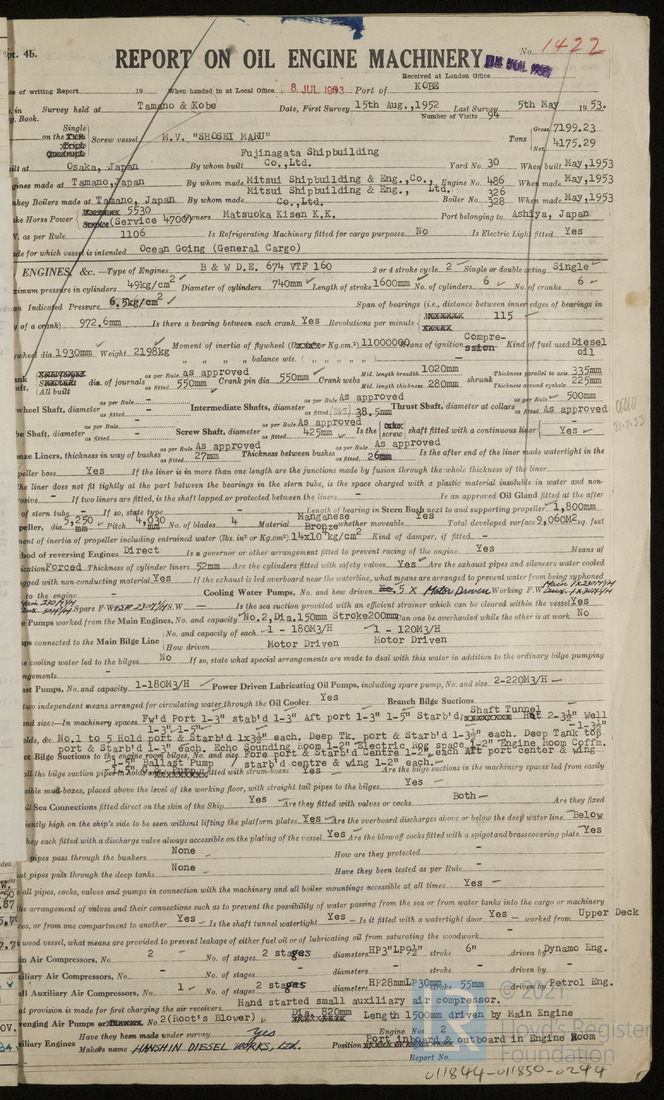 pt. 4b.
REPORT ON OIL ENGINE MACHINERY.
No. 1422
Received at London Office
te of writing Report 19 When handed in at Local Office 8 JUL 1953 Port of KOBE
in Survey held at Tamano & Kobe Date, First Survey 15th Aug., 1952 Last Survey 5th May 1953.
g. Book. Number of Visits 94
Single
on the Screw vessel M.V. "SHOSEI MARU" Tons Gross 7199.23
Net 4175.29
ilt at Osaka, Japan By whom built Fujinagata Shipbuilding Co.,Ltd. Yard No. 30 When built May,1953
gines made at Tamano, Japan By whom made Mitsui Shipbuilding & Eng., Co., Ltd. Engine No. 486 When made May,1953
nkey Boilers made at Tamano, Japan By whom made Mitsui Shipbuilding & Eng., Co.,Ltd. Boiler No. 326 328 When made May,1953
ke Horse Power 5530 (Service 4700) Owners Matsuoka Kisen K.K. Port belonging to Ashiya, Japan
. as per Rule 1106 Is Refrigerating Machinery fitted for cargo purposes. No Is Electric Light fitted Yes
de for which vessel is intended Ocean Going (General Cargo)
ENGINES, &c. —Type of Engines B & W D.E. 674 VTF 160 2 or 4 stroke cycle 2 Single or double acting Single
ximum pressure in cylinders 49kg/cm2 Diameter of cylinders 740mm Length of stroke 1600mm No. of cylinders 6 No. of cranks 6
an Indicated Pressure 6.5kg/cm2 Span of bearings (i.e., distance between inner edges of bearings in
y of a crank) 972.6mm Is there a bearing between each crank Yes Revolutions per minute 115
wheel dia. 1930mm Weight 2198kg Moment of inertia of flywheel (Kg.cm.2) 11000000 Means of ignition Compression Kind of fuel used Diesel oil
" " " balance wts. ( " " " )
ank aft. All built dia. of journals as per Rule as approved as fitted 550mm Crank pin dia. 550mm Crank webs Mid. length breadth 1020mm Mid. length thickness 280mm shrunk Thickness parallel to axis 335mm Thickness around eyehole 225mm
wheel Shaft, diameter as per Rule - as fitted - Intermediate Shafts, diameter as per Rule As approved as fitted 38.5mm Thrust Shaft, diameter at collars as per Rule 500mm as fitted As approved
be Shaft, diameter as per Rule - as fitted - Screw Shaft, diameter as per Rule As approved as fitted 425mm Is the screw shaft fitted with a continuous liner - Yes
nze Liners, thickness in way of bushes as per Rule As approved as fitted 27mm Thickness between bushes as per Rule As approved as fitted 26mm Is the after end of the liner made watertight in the
peller boss Yes If the liner is in more than one length are the junctions made by fusion through the whole thickness of the liner
he liner does not fit tightly at the part between the bearings in the stern tube, is the space charged with a plastic material insoluble in water and non-
rosive - If two liners are fitted, is the shaft lapped or protected between the liners - Is an approved Oil Gland fitted at the after
of stern tube - If so, state type Length of bearing in Stern Bush next to and supporting propeller 1,800mm
peller, dia. 5,250 mm Pitch 4,030 mm No. of blades 4 Material Manganese Bronze whether moveable Yes Total developed surface 9,060M2 sq. feet
ent of inertia of propeller including entrained water (lbs. in2 or Kg.cm2) Kind of damper, if fitted -
hod of reversing Engines Direct Is a governor or other arrangement fitted to prevent racing of the engine Yes Means of
ication Forced Thickness of cylinder liners 52mm Are the cylinders fitted with safety valves Yes Are the exhaust pipes and silencers water cooled
gged with non-conducting material Yes If the exhaust is led overboard near the waterline, what means are arranged to prevent water from being syphoned
to the engine - Cooling Water Pumps, No. and how driven 5 X Motor Driven Working F.W.
Spare F.W. S.W. Is the sea suction provided with an efficient strainer which can be cleared within the vessel Yes
e Pumps worked from the Main Engines, No. and capacity No.2, Dia.150mm Stroke200mm Can one be overhauled while the other is at work No
ps connected to the Main Bilge Line No. and capacity of each 1 - 180M3/H 1 - 120M3/H
How driven Motor Driven Motor Driven
e cooling water led to the bilges No If so, state what special arrangements are made to deal with this water in addition to the ordinary bilge pumping
ngements
ast Pumps, No. and capacity 1-180M3/H Power Driven Lubricating Oil Pumps, including spare pump, No. and size. 2-220M3/H
two independent means arranged for circulating water through the Oil Cooler Yes Branch Bilge Suctions
nd size:—In machinery spaces Fw'd Port 1-3" stab'd 1-3" Aft port 1-3" 1-5" Starb'd Shaft Tunnel 2-3½" Well
1-3" 1-5" 1-3½"
olds, &c. No.1 to 5 Hold port & Starb'd 1x3½" each. Deep Tk. port & Starb'd 1-3" each. Deep Tank top
port & Starb'd 1-3" each. Echo Sounding Room 1-2" Electric Rog space 1-2" Engine Room Coffm.
ct Bilge Suctions to the engine room bilges, No. and size Fore port & Starb'd Centre 1-2", each Aft port center & wing
1-5" Ballast Pump starb'd centre & wing 1-2" each.
all the bilge suction pipes in holds fitted with strum-boxes Yes Are the bilge suctions in the machinery spaces led from easily
sible mud-boxes, placed above the level of the working floor, with straight tail pipes to the bilges Yes
ll Sea Connections fitted direct on the skin of the Ship Yes Are they fitted with valves or cocks Both Are they fixed
iently high on the ship's side to be seen without lifting the platform plates Yes Are the overboard discharges above or below the deep water line Below
hey each fitted with a discharge valve always accessible on the plating of the vessel Yes Are the blow off cocks fitted with a spigot and brass covering plate Yes
pipes pass through the bunkers None How are they protected -
at pipes pass through the deep tanks None Have they been tested as per Rule -
all pipes, cocks, valves and pumps in connection with the machinery and all boiler mountings accessible at all times Yes
he arrangement of valves and their connections such as to prevent the possibility of water passing from the sea or from water tanks into the cargo or machinery
ces, or from one compartment to another Yes Is the shaft tunnel watertight Yes Is it fitted with a watertight door Yes worked from Upper Deck
wood vessel, what means are provided to prevent leakage of either fuel oil or of lubricating oil from saturating the woodwork -
in Air Compressors, No. 2 No. of stages 2 stages diameters stroke 6" driven by Dynamo Eng.
iliary Air Compressors, No. - No. of stages - diameters - stroke - driven by -
ll Auxiliary Air Compressors, No. 1 No. of stages 2 stages diameters HP28mmLP30mm stroke 55mm driven by Petrol Eng.
at provision is made for first charging the air receivers Hand started small auxiliary air compressor.
enging Air Pumps No. 2(Root's Blower) Dia. 820mm Length 1500mm driven by Main Engine
iliary Engines Have they been made under survey yes Engine Nos. 2
Makers name HANSHIN DIESEL WORKS, Ltd. Position Port inboard & outboard in Engine Room
Report No.
© 2021
Lloyd's Register
Foundation
011844-011850-0244